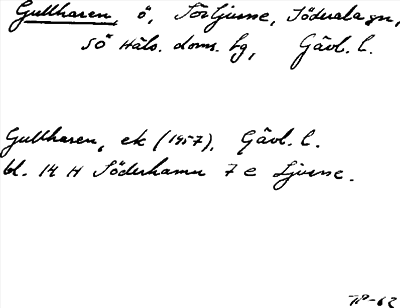 Gullharen, ö, Sörljusne, Söderala sn,
SÖ Häls. doms. hg, Gävl. l.
Gullharen, ek (1957), Gävl. l.
bl. 14 H Söderhamn 7 e Ljusne.
-62